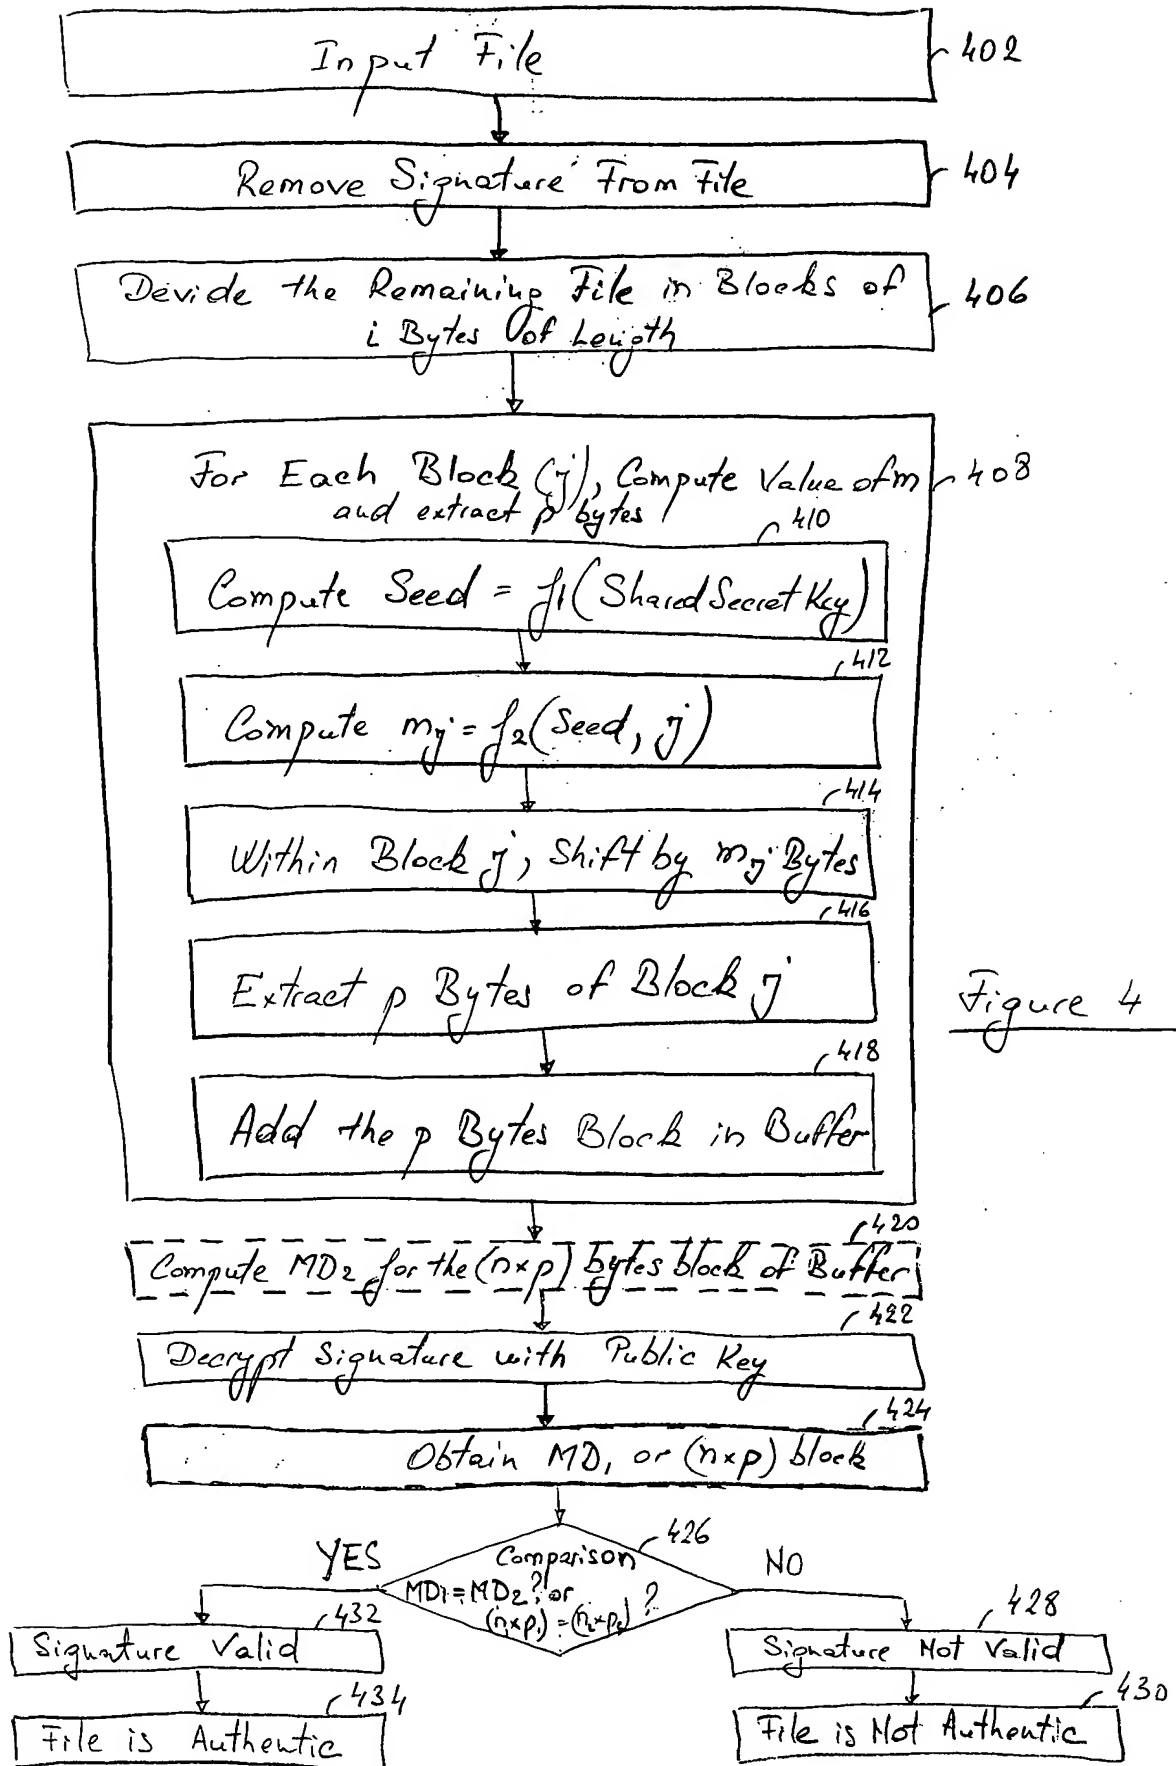 Input File
402
Remove Signature From File
404
Devide the Remaining File in Blocks of
i Bytes of Length
406
For Each Block (j), Compute Value of m
and extract p bytes
408
410
Compute Seed = f1(Shared Secret Key)
412
Compute mj = f2(Seed, j)
414
Within Block j, Shift by mj Bytes
416
Extract p Bytes of Block j
Figure 4
418
Add the p Bytes Block in Buffer
420
Compute MD2 for the (n×p) bytes block of Buffer
422
Decrypt Signature with Public Key
424
Obtain MD1 or (n×p) block
426
YES
Comparison
MD1=MD2? or
(n1×p1)=(n2×p2)?
NO
432
Signature Valid
428
Signature Not Valid
434
File is Authentic
430
File is Not Authentic